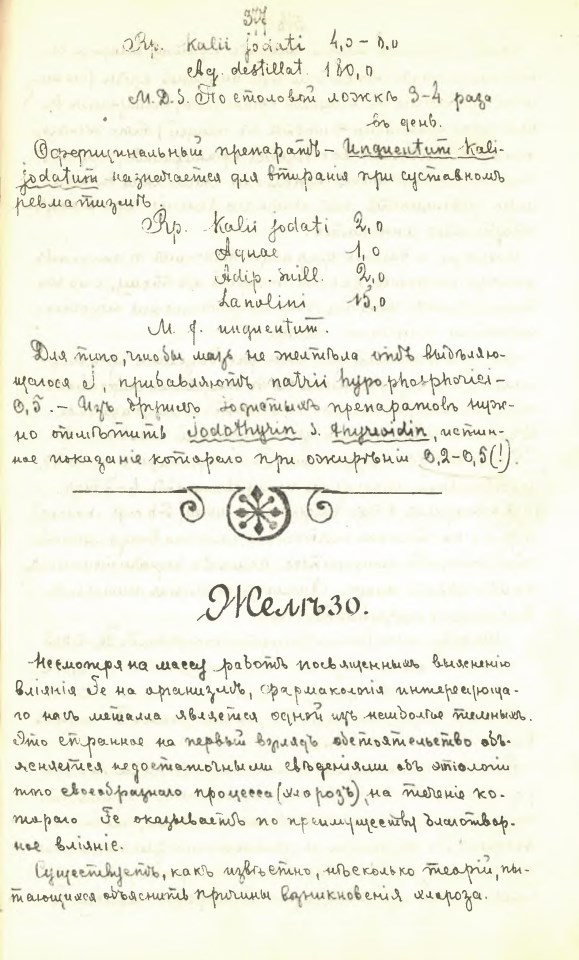 37
Rp. Kalii jodati 4,0 – 8,0
Aq. destillat 180,0
M.D.S. По столовой ложкѣ 3-4 раза
въ день.
Оффицинальный препаратъ – Unguentum Kali-
jodatum назначается для втиранія при суставномъ
ревматизмѣ.
Rp. Kalii jodati 2,0
Aquae 1,0
Adip. suill. 2,0
Lanolini 15,0
M. f. unguentum.
Для того, чтобы мазь не желтѣла отъ выдѣляю-
щагося J, прибавляютъ natrii hypophosphorici –
0,5. – Изъ другихъ іодистыхъ препаратовъ нуж-
но отмѣтить Jodothyrin s. thyroidin, истин-
ное показаніе котораго при ожирѣніи 0,2-0,5(!).
Желѣзо.
Несмотря на массу работъ посвященныхъ выясненію
вліянія Fe на организмъ, фармакологія интересующа-
го насъ металла является одной изъ наиболѣе темныхъ.
Это странное на первый взглядъ обстоятельство объ-
ясняется недостаточными свѣдѣніями объ этіологіи
того своеобразнаго процесса (хлорозъ), на теченіе ко-
тораго Fe оказываетъ по преимуществу благотвор-
ное вліяніе.
Существуетъ, какъ извѣстно, нѣсколько теорій, пы-
тающихся объяснить причины возникновенія хлороза.